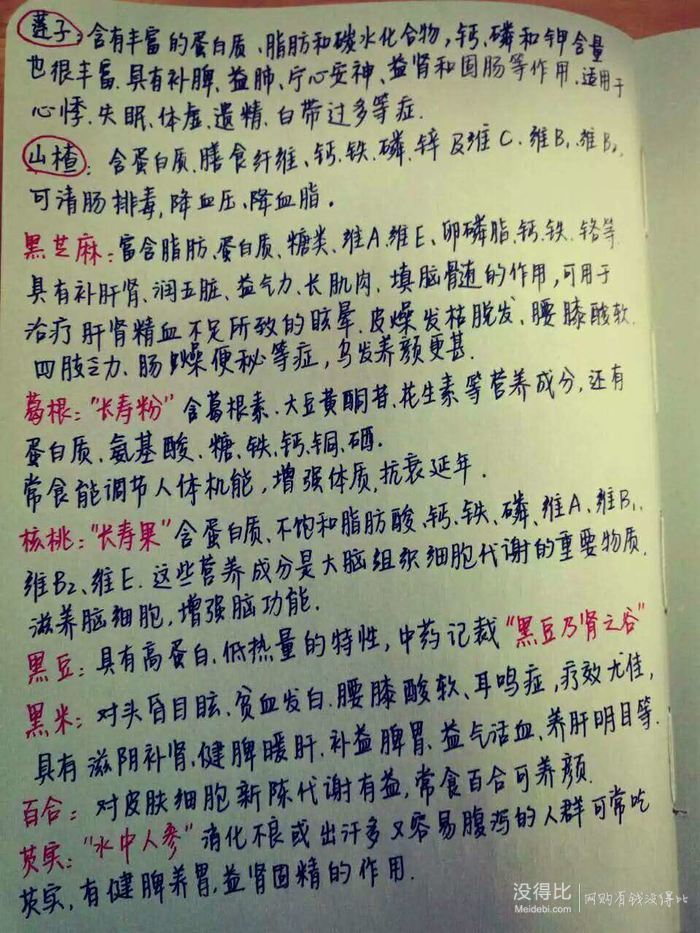 莲子：含有丰富的蛋白质、脂肪和碳水化合物，钙、磷和钾含量
也很丰富.具有补脾、益肺、宁心安神、益肾和固肠等作用.适用于
心悸.失眠、体虚、遗精、白带过多等症.
山楂：含蛋白质.膳食纤维、钙.铁.磷、锌及维C.维B₁.维B₂,
可清肠排毒,降血压、降血脂.
黑芝麻：富含脂肪、蛋白质、糖类、维A.维E、卵磷脂.钙.铁.铬等
具有补肝肾、润五脏、益气力、长肌肉、填脑骨道的作用,可用于
治疗肝肾精血不足所致的眩晕.皮燥发枯脱发、腰膝酸软.
四肢乏力、肠燥便秘等症,乌发养颜更甚.
葛根：“长寿粉”含葛根素.大豆黄酮苷、花生素等营养成分,还有
蛋白质、氨基酸、糖、铁、钙、铜、硒.
常食能调节人体机能,增强体质,抗衰延年.
核桃：“长寿果”含蛋白质、不饱和脂肪酸、钙、铁、磷、维A、维B₁、
维B₂、维E.这些营养成分是大脑组织细胞代谢的重要物质.
滋养脑细胞,增强脑功能.
黑豆：具有高蛋白.低热量的特性,中药记载“黑豆乃肾之谷”
黑米：对头昏目眩、贫血发白.腰膝酸软、耳鸣症,疗效尤佳,
具有滋阴补肾、健脾暖肝.补益脾胃、益气活血、养肝明目等.
百合：对皮肤细胞新陈代谢有益,常食百合可养颜.
芡实：“水中人参”消化不良或出汗多又容易腹泻的人群可常吃
芡实,有健脾养胃,益肾固精的作用.
没得比 网购有钱没得比
Meidebi.com